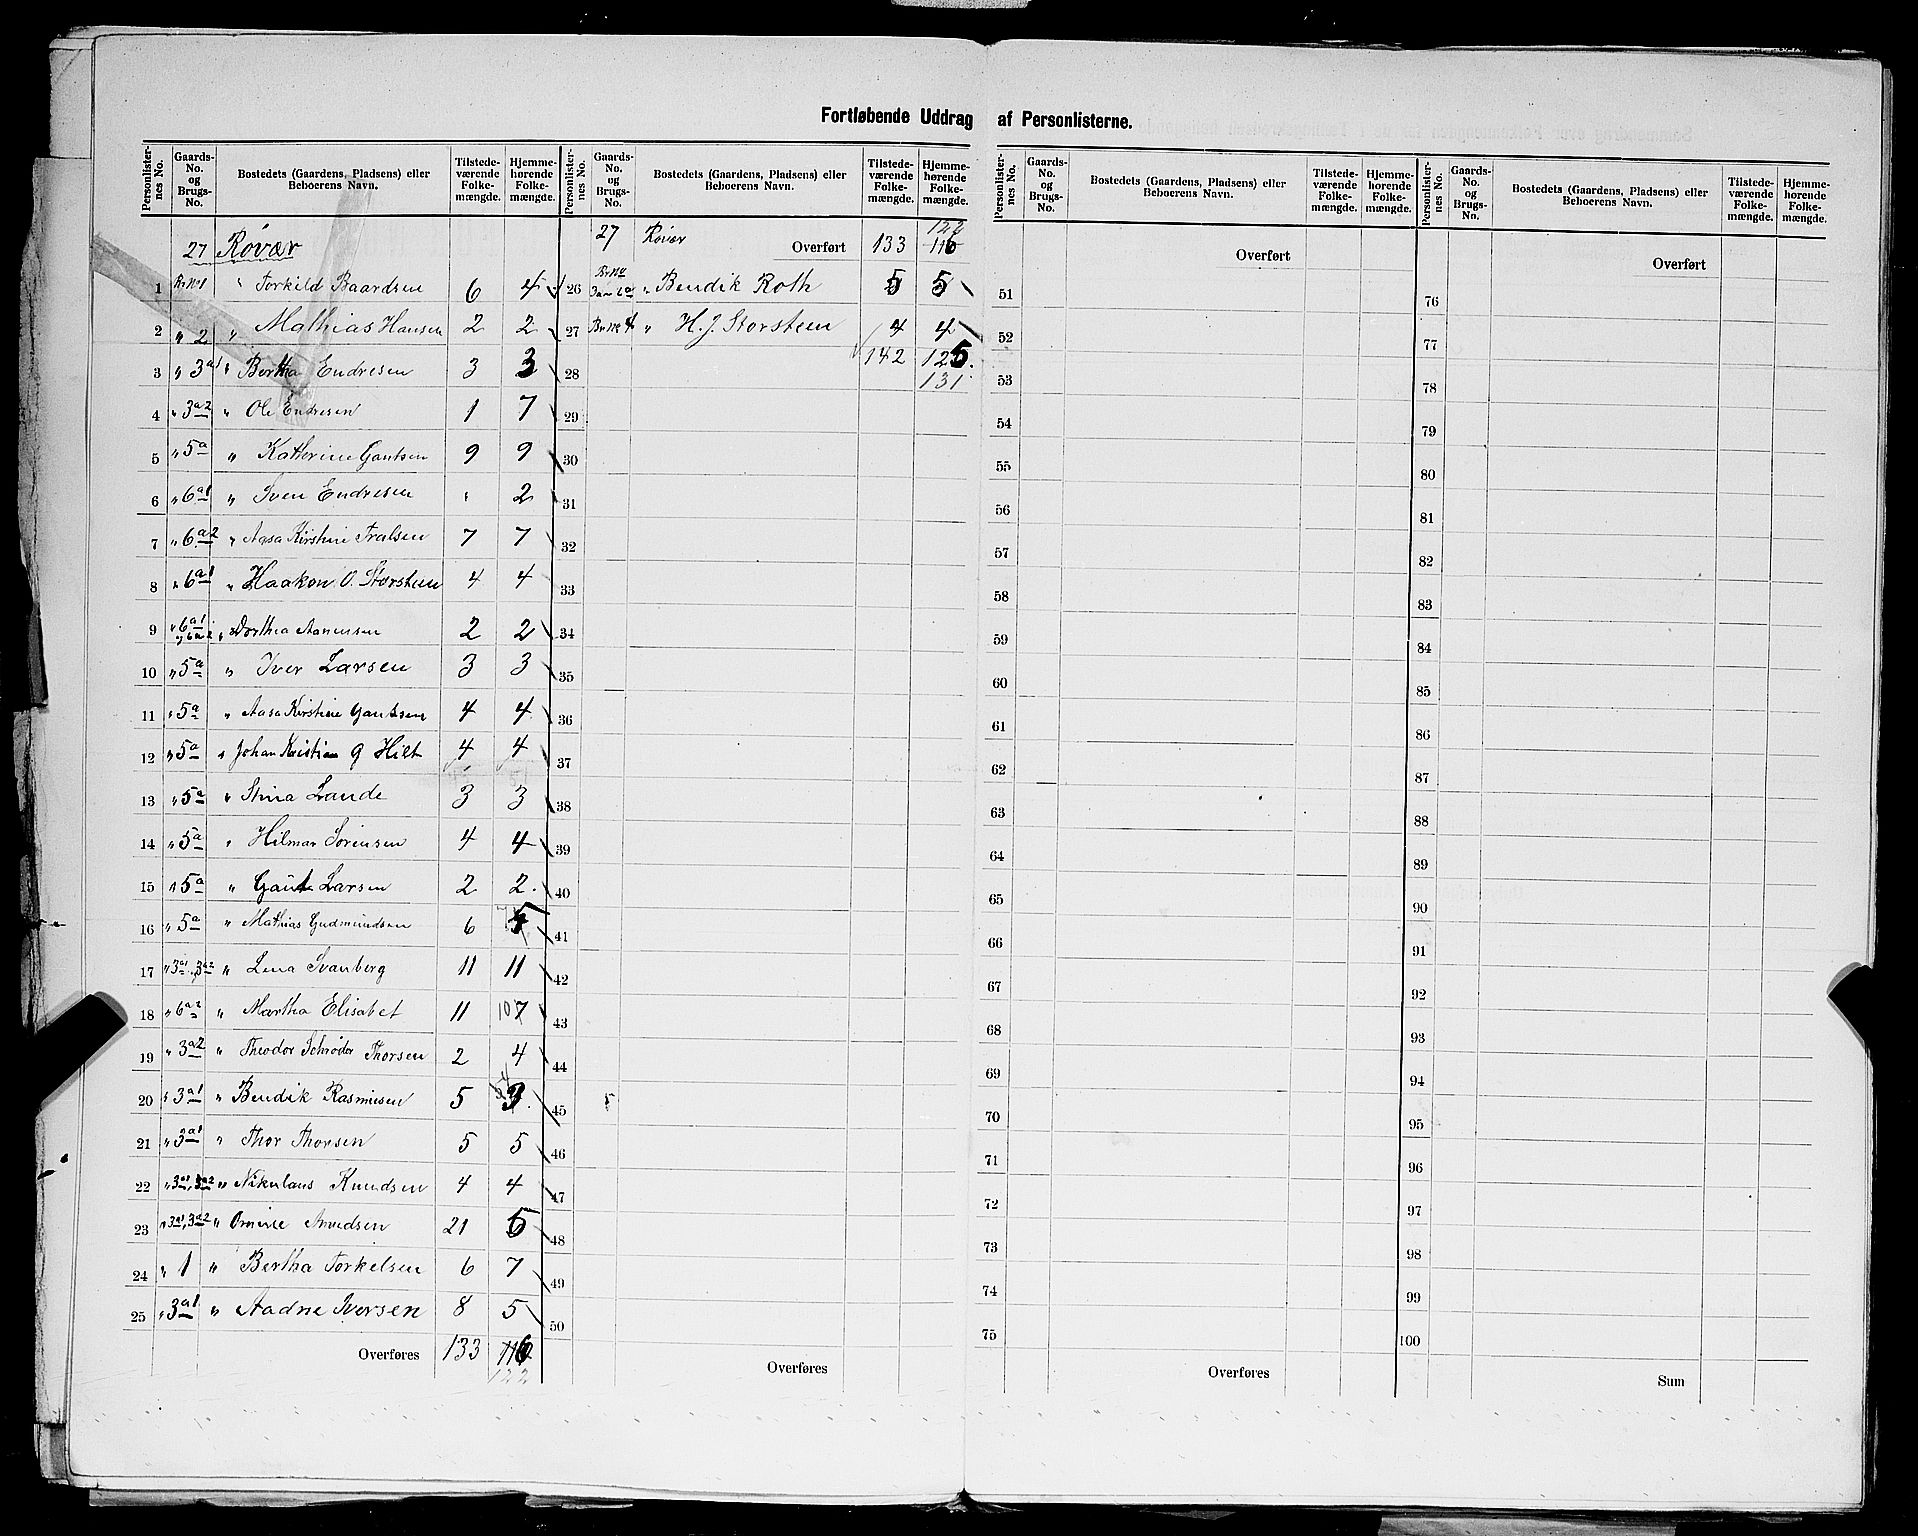 Fortløbende Uddrag af Personlisterne.
Personlisternes No. Gaards-No. og Brugs-No. Bostedets (Gaardens, Pladsens) eller Beboerens Navn. Tilstedeværende Folkemængde. Hjemmehørende Folkemængde.
27 Röver
1 Br No 1 " Torkild Baardsen 6 4
2 " 2 " Mathias Hansen 2 2
3 " 3a1 " Bertha Endresen 3 3
4 " 3a2 " Ole Endresen 1 7
5 " 5a " Katherine Gautsen 9 9
6 " 6a1 " Sven Endresen " 2
7 " 6a2 " Aasa Kirstine Tralsen 7 7
8 " 6a1 " Haakon O. Storsteen 4 4
9 " 6a1 og 6a2 " Dorthea Aanensen 2 2
10 " 5a " Iver Larsen 3 3
11 " 5a " Aasa Kirstine Gautsen 4 4
12 " 5a " Johan Kristian G Hilt 4 4
13 " 5a " Stina Lande 3 3
14 " 5a " Hilmar Sörensen 4 4
15 " 5a " Gaut Larsen 2 2
16 " 5a " Mathias Gudmundsen 6
17 " 3a1, 3a2 " Lena Svanberg 11 11
18 " 6a2 " Martha Elisabet 11 10 7
19 " 3a2 " Theodor Schröder Thorsen 2 4
20 " 3a1 " Bendik Rasmusen 5 3
21 " 3a1 " Thor Thorsen 5 5
22 " 3a1, 3a2 " Nikulaus Knudsen 4 4
23 " 3a1, 3a2 " Omine Amudsen 21 5
24 " 1 " Bertha Torkelsen 6 7
25 " 3a1 " Aadne Iversen 8 5
Overføres 133 116
122
Personlisternes No. Gaards-No. og Brugs-No. Bostedets (Gaardens, Pladsens) eller Beboerens Navn. Tilstedeværende Folkemængde. Hjemmehørende Folkemængde.
122
27 Röver Overført 133 116
26 Br No 3a - 6a " Bendik Roth 5 5
27 Br No 4 " H. J. Storsteen 4 4
28 142 125.
131
29
30
31
32
33
34
35
36
37
38
39
40
41
42
43
44
45
46
47
48
49
50
Overføres
Personlisternes No. Gaards-No. og Brugs-No. Bostedets (Gaardens, Pladsens) eller Beboerens Navn. Tilstedeværende Folkemængde. Hjemmehørende Folkemængde.
Overført
51
52
53
54
55
56
57
58
59
60
61
62
63
64
65
66
67
68
69
70
71
72
73
74
75
Overføres
Personlisternes No. Gaards-No. og Brugs-No. Bostedets (Gaardens, Pladsens) eller Beboerens Navn. Tilstedeværende Folkemængde. Hjemmehørende Folkemængde.
Overført
76
77
78
79
80
81
82
83
84
85
86
87
88
89
90
91
92
93
94
95
96
97
98
99
100
Sum